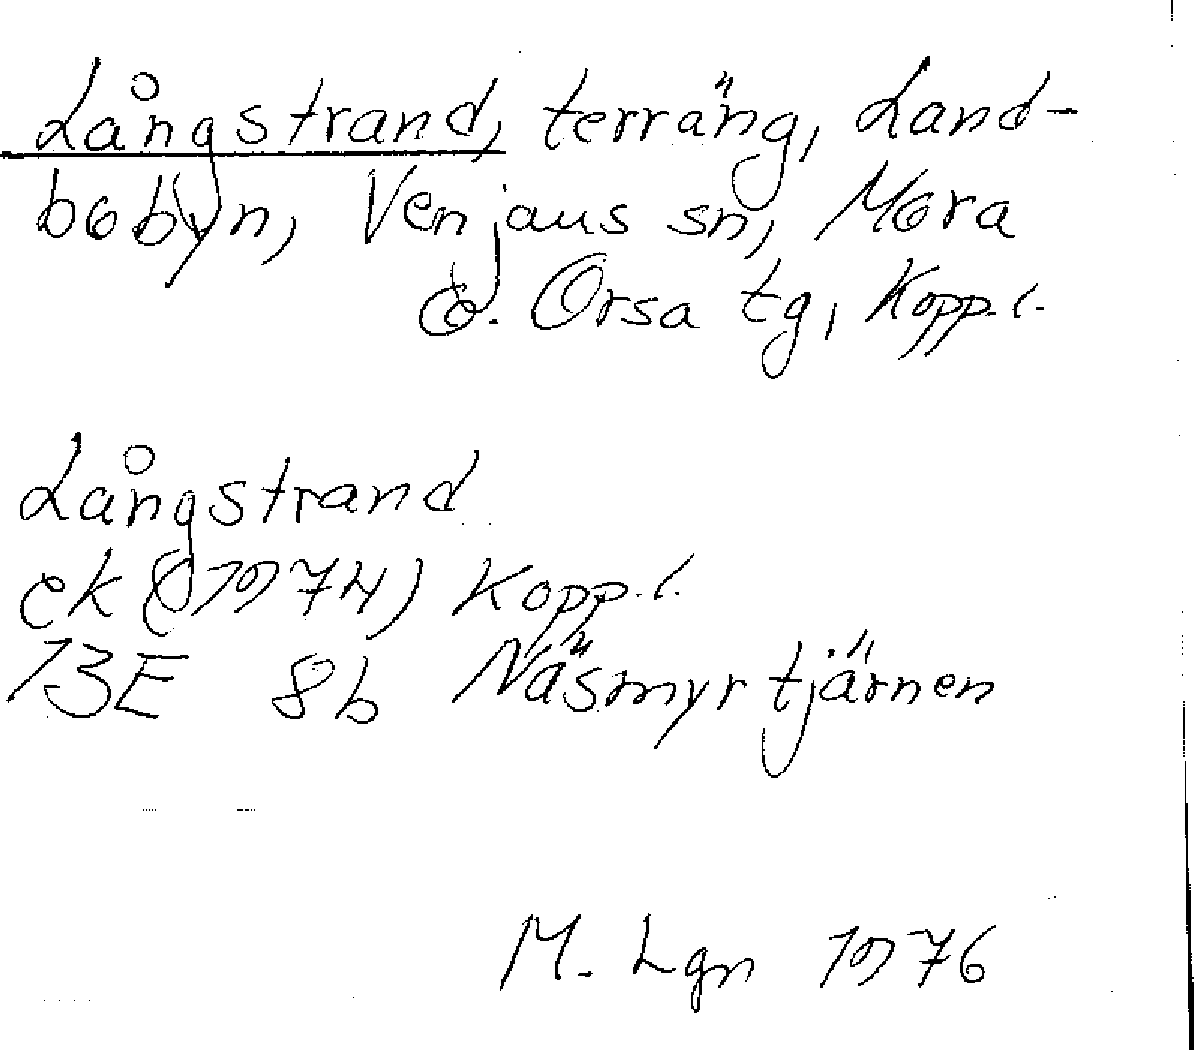 Långstrand, terräng, Land-
bobyn, Venjans sn, Mora
o. Orsa tg, Kopp. l.
Långstrand
ek (1974) Kopp. l.
13E 8b Näsmyrtjärnen
M. Lgn 1976